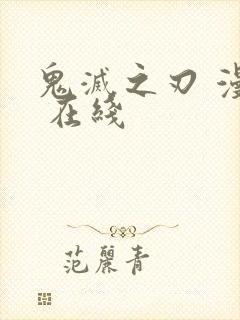 鬼滅之刃 漫
在綫
范麗青